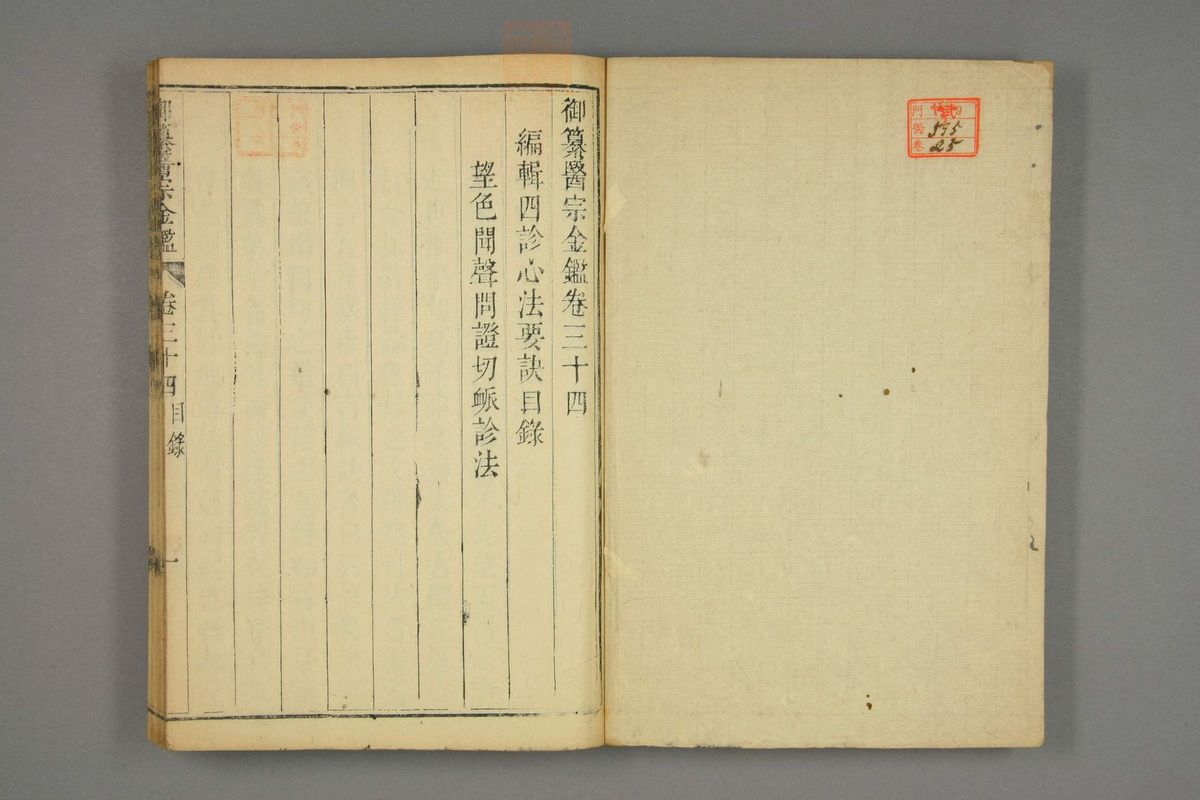 門
号 595
卷 25
御纂醫宗金鑑卷三十四
編輯四診心法要訣目錄
望色聞聲問證切脈診法
御纂醫宗金鑑 卷三十四 目錄 一